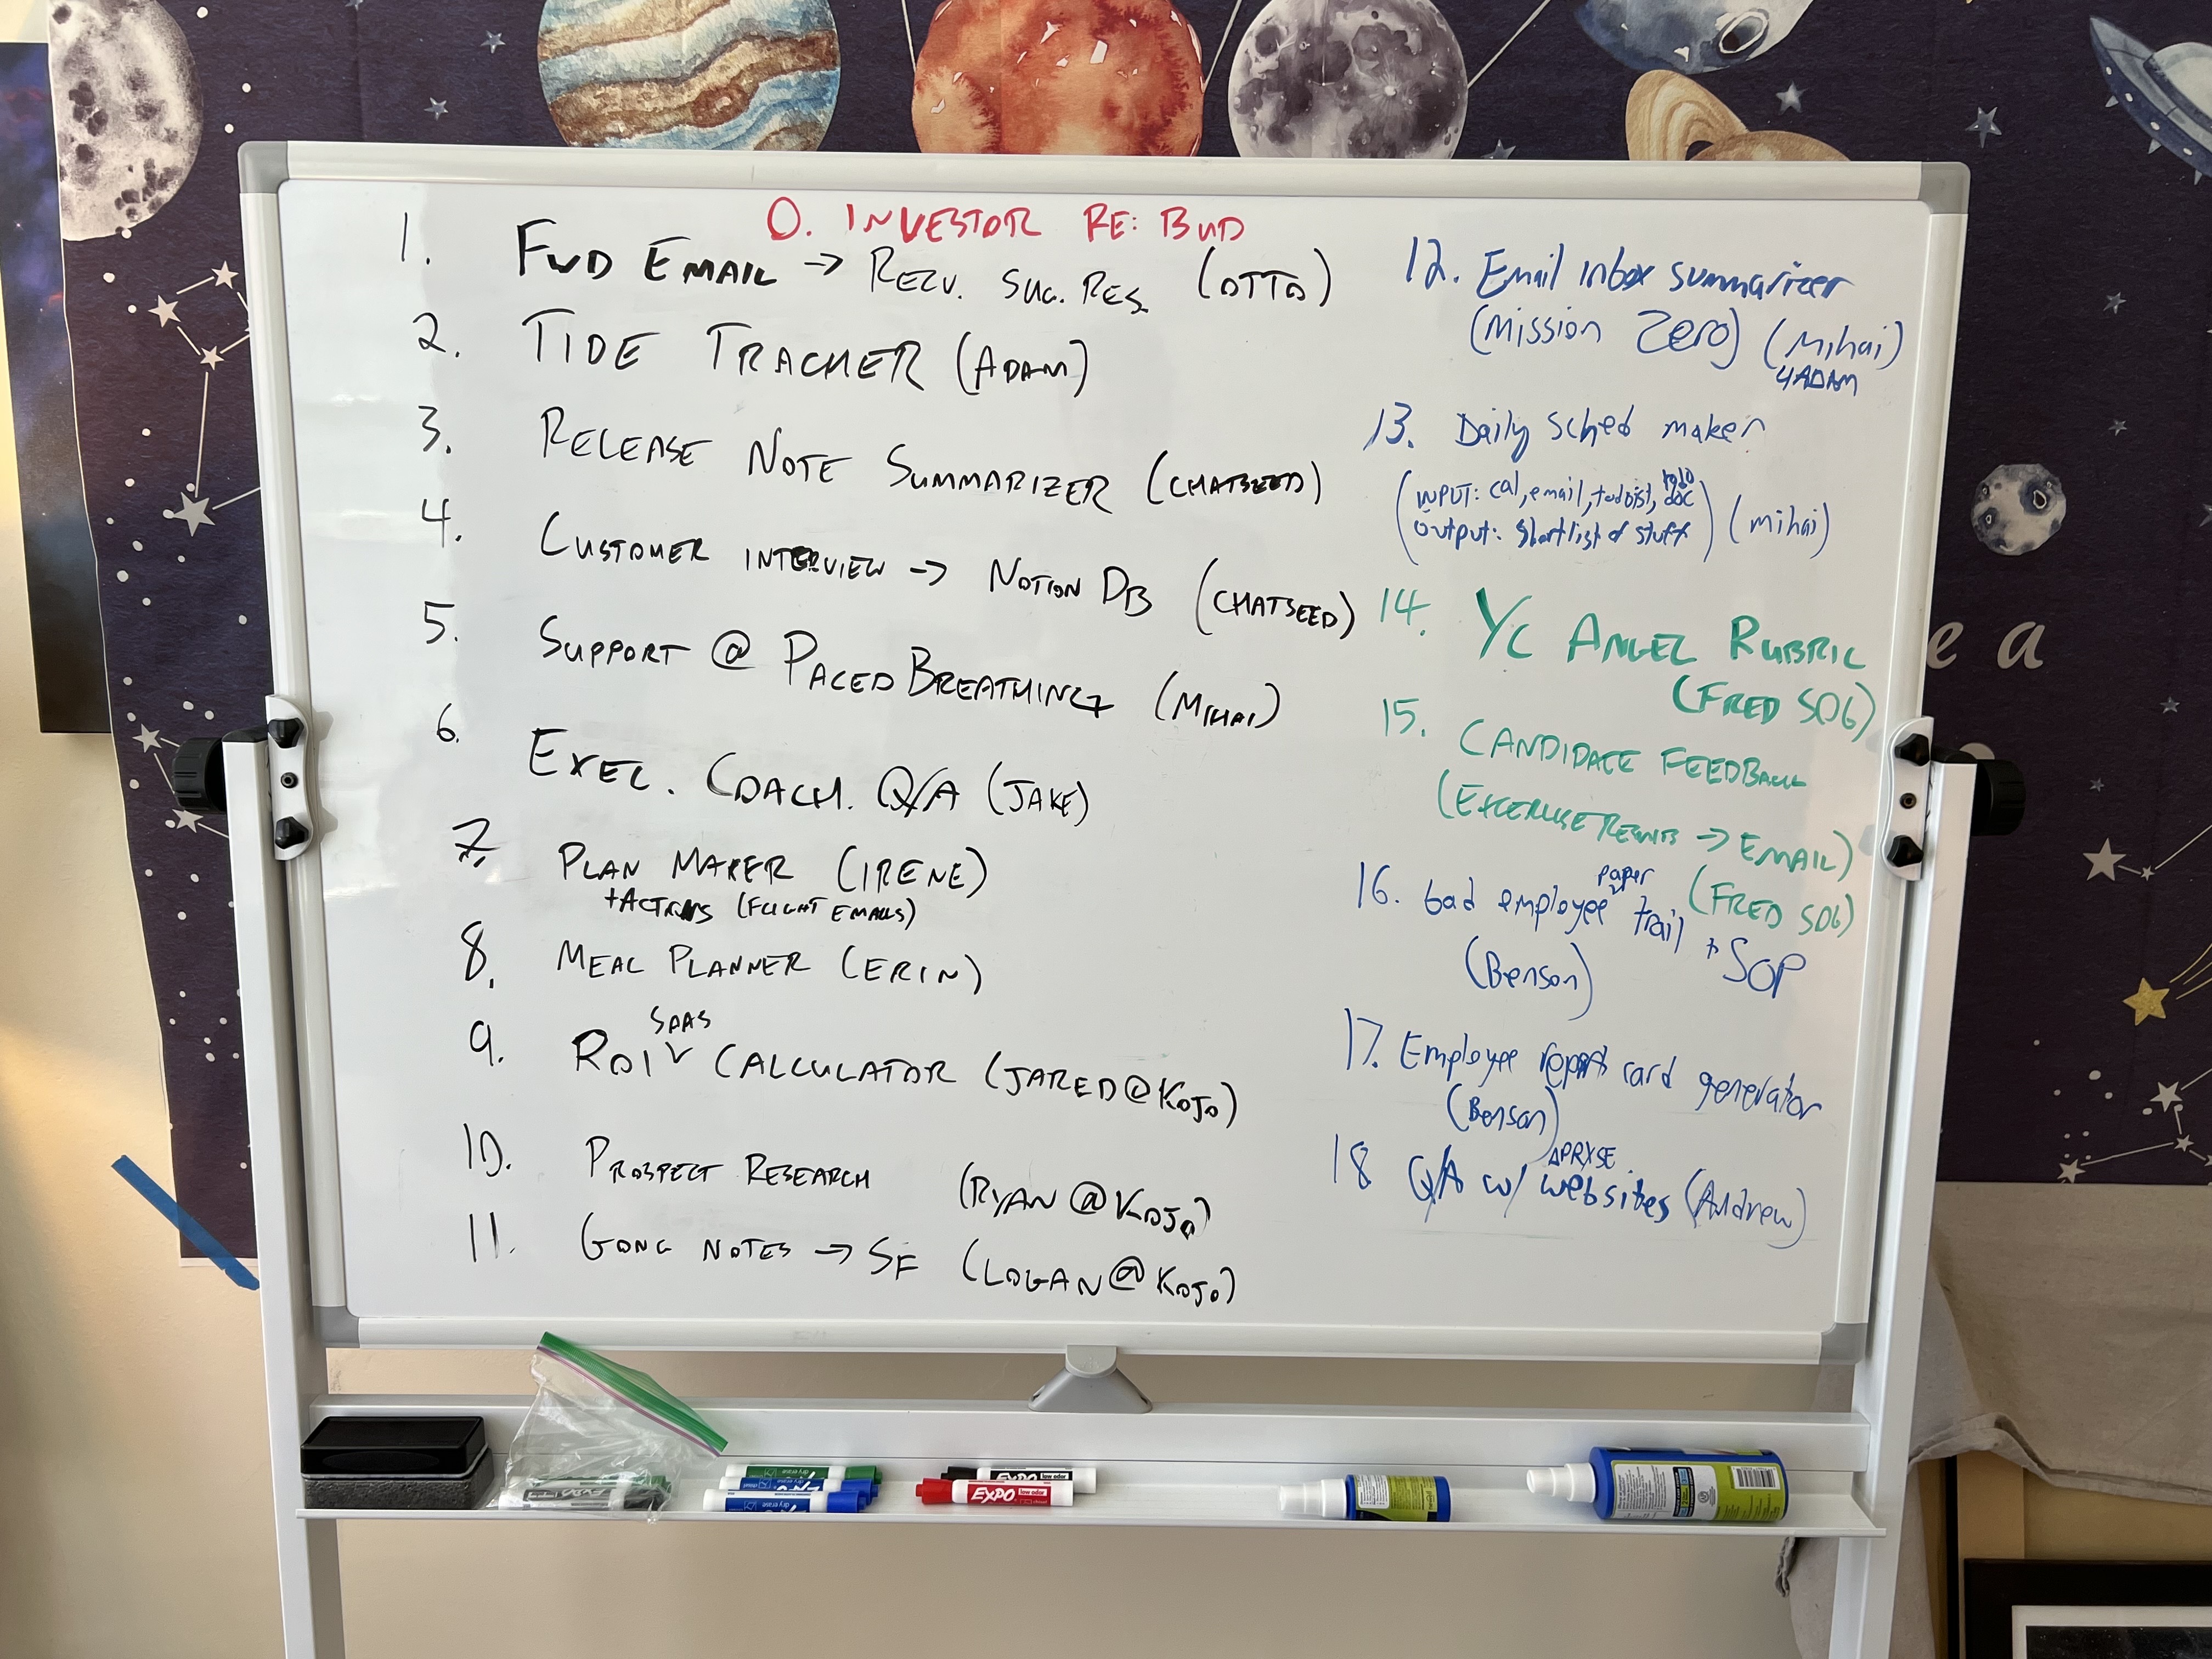 0. INVESTOR RE: BUD
1. FWD EMAIL → RECV. SUG. RES. (OTTO)
2. TIDE TRACKER (ADAM)
3. RELEASE NOTE SUMMARIZER (CHATSEED)
4. CUSTOMER INTERVIEW → NOTION DB (CHATSEED)
5. SUPPORT @ PACED BREATHING (MIHAI)
6. EXEC. COACH. Q/A (JAKE)
7. PLAN MAKER (IRENE)
+ACTIONS (FLIGHT EMAILS)
8. MEAL PLANNER (ERIN)
SAAS
9. ROI CALCULATOR (JARED@KOJO)
10. PROSPECT RESEARCH (RYAN@KOJO)
11. GONG NOTES → SF (LOGAN@KOJO)
12. Email inbox summarizer
(Mission Zero) (Mihai)
4 ADAM
13. Daily sched maker
(INPUT: cal, email, todoist, todo doc
output: shortlist of stuff) (mihai)
14. YC ANGEL RUBRIC
(FRED SOG)
15. CANDIDATE FEEDBACK
(EXERCISE RESULTS → EMAIL)
(FRED SOG)
paper
16. bad employee trail + SOP
(Benson)
17. Employee report card generator
(Benson)
APRXSE
18 Q/A w/ websites (Andrew)
e a
EXPO
EXPO low odor